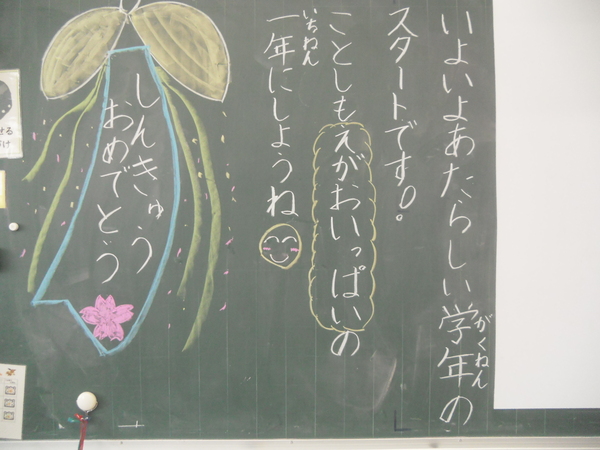 いよいよあたらしい学年の
がくねん
スタートです。
ことしもえがおいっぱいの
一年にしようね
いちねん
しんきゅう
おめでとう
せる